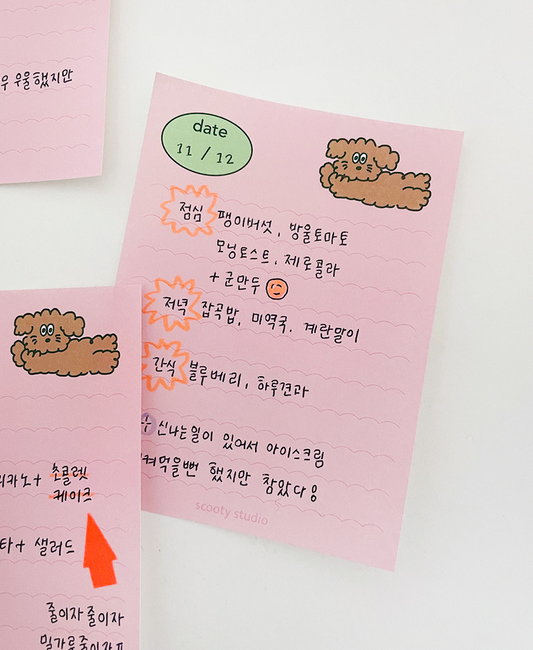 우울했지만
date
11 / 12
점심 팽이버섯, 방울토마토
모닝토스트, 제로콜라
+ 군만두
저녁 잡곡밥, 미역국, 계란말이
간식 블루베리, 하루견과
신나는일이 있어서 아이스크림
먹을뻔 했지만 참았다!
scooty studio
카노 + 초콜렛
케이크
+ 샐러드
줄이자줄이자
밀가루줄이자